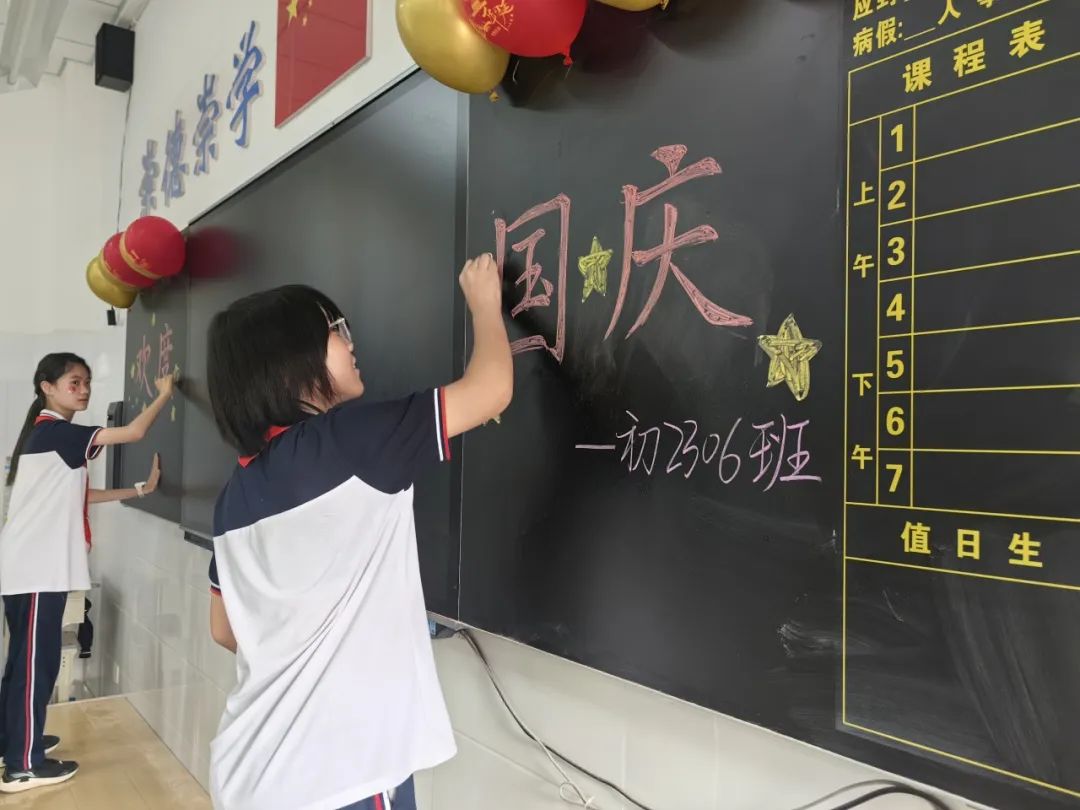 崇德崇学
欢度
国庆
一初2306班
应到
病假:__人事
课程表
上午
1
2
3
4
下午
5
6
7
值日生